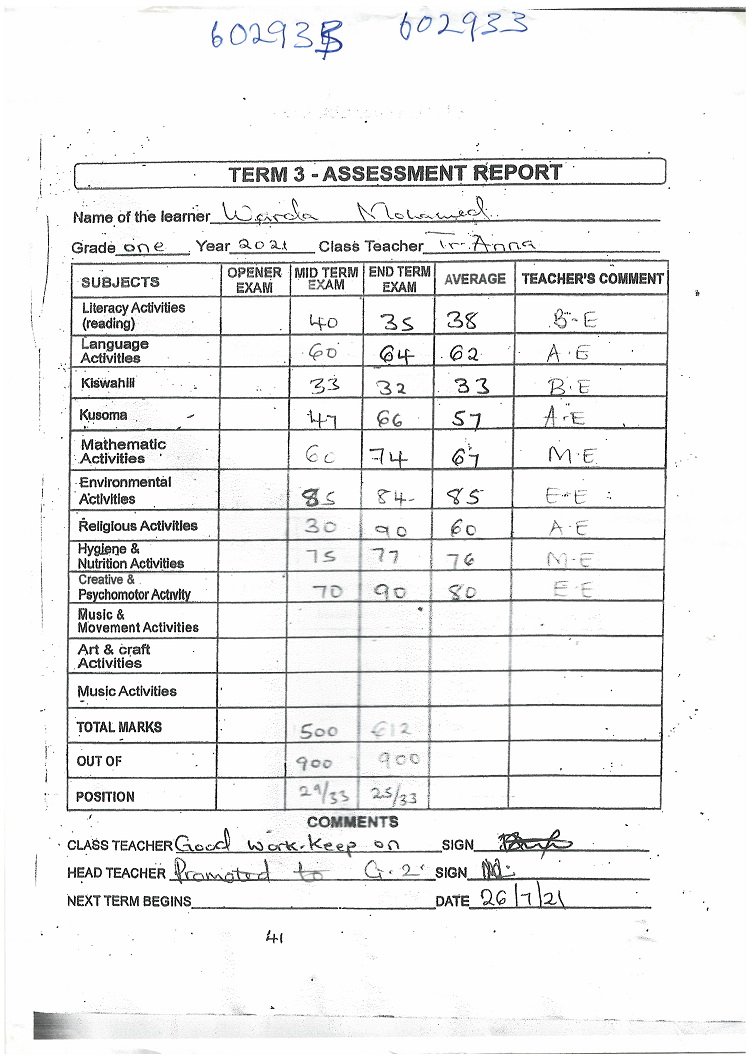 602933 602933
TERM 3 - ASSESSMENT REPORT
Name of the learner Warda Mohamed
Grade one Year 2021 Class Teacher Tr. Anna
SUBJECTS OPENER EXAM MID TERM EXAM END TERM EXAM AVERAGE TEACHER'S COMMENT
Literacy Activities (reading) 40 35 38 B-E
Language Activities 60 64 62 A.E
Kiswahili 33 32 33 B.E
Kusoma 47 66 57 A-E
Mathematic Activities 60 74 67 M.E
Environmental Activities 85 84 85 E-E
Religious Activities 30 90 60 A.E
Hygiene & Nutrition Activities 75 77 76 M-E
Creative & Psychomotor Activity 70 90 80 E-E
Music & Movement Activities
Art & craft Activities
Music Activities
TOTAL MARKS 500 612
OUT OF 900 900
POSITION 29/33 25/33
COMMENTS
CLASS TEACHER Good work. Keep on SIGN
HEAD TEACHER Promoted to G.2 SIGN
NEXT TERM BEGINS DATE 26/7/21
41